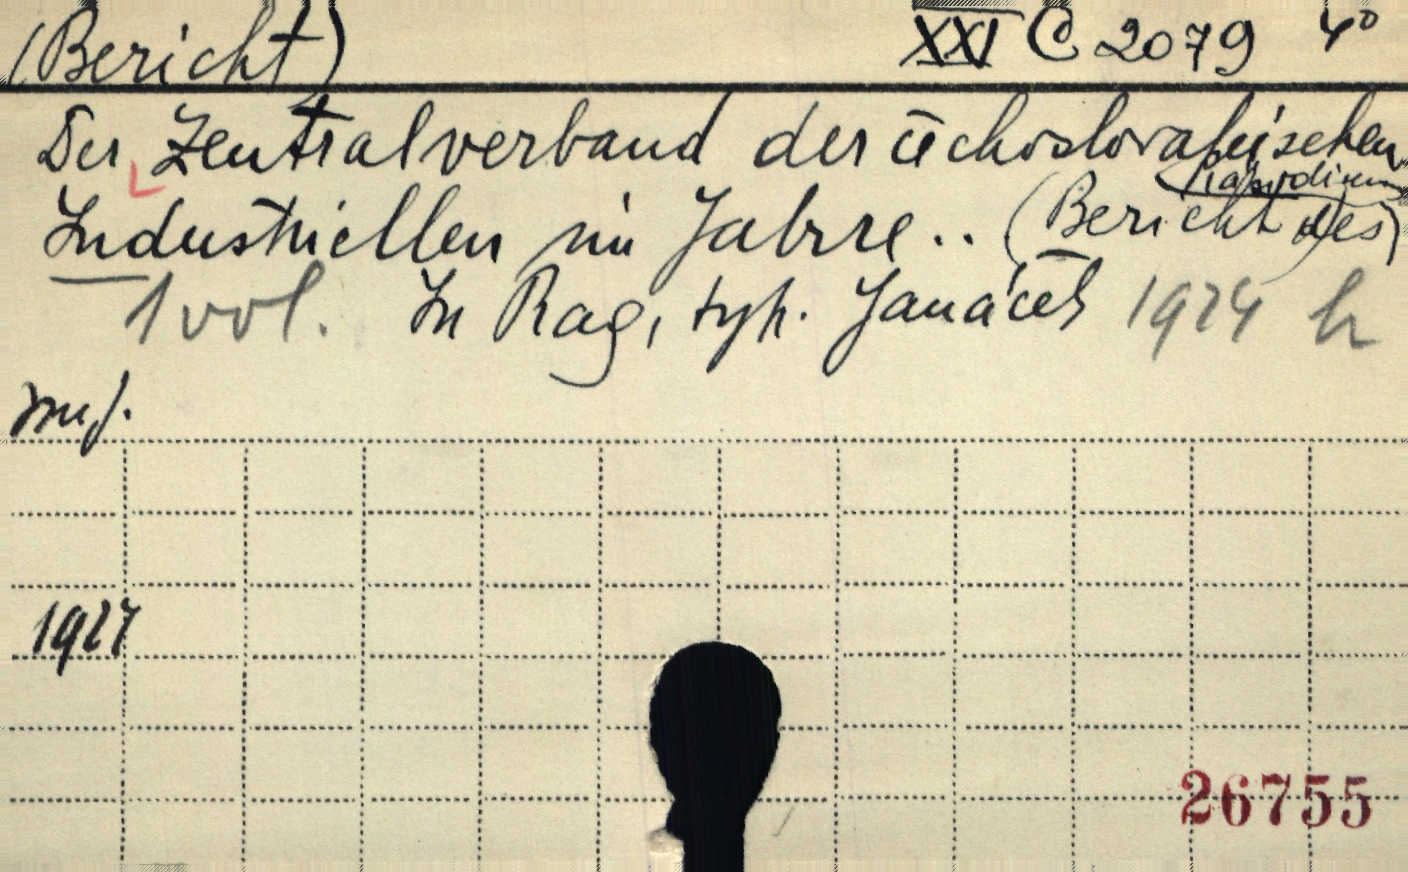 (Bericht) XXI C 2079 4°
Der Zentralverband der čechoslovakischen
Industriellen im Jahre .. (Bericht des Präsidiums)
1 vol. In Prag, typ. Janáček 1924
1927
26755